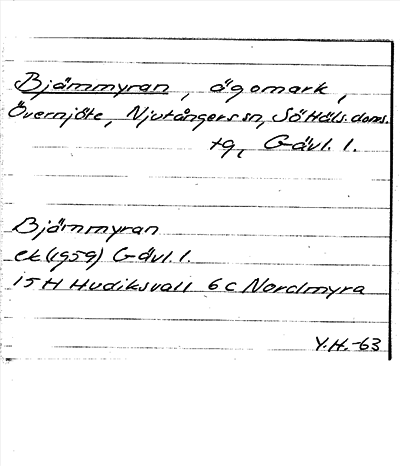 Bjämmyran, ägomark,
Övernjöte, Njutångers sn, SöHäls. doms.
tg, Gävl. l.
Bjämmyran
ek (1959) Gävl. l.
15H Hudiksvall 6c Nordmyra
Y.H.-63